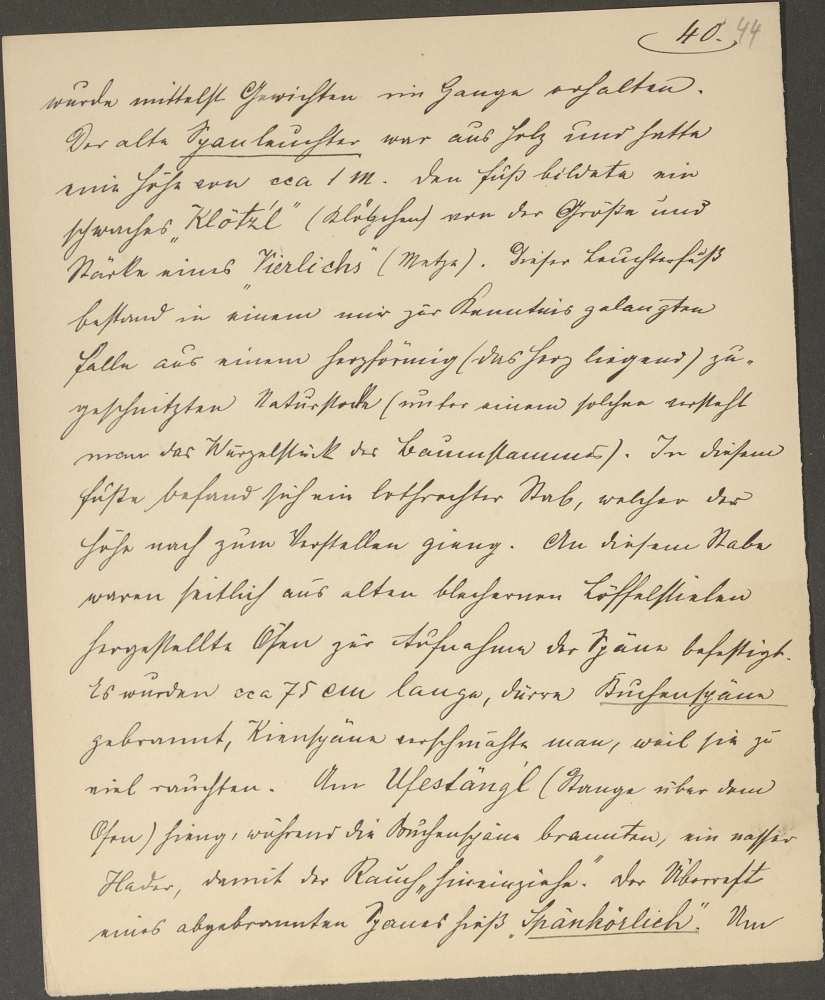 40. 44
wurde mittelst Gewichten im Gange erhalten.
Der alte Spanleuchter war aus Holz und hatte
eine Höhe von cca 1 m. Den Fuß bildete ein
schwaches „Klötzl" (Klötzchen) von der Größe und
Stärke eines „Vierlichs" (Metze). Dieser Leuchterfuß
bestand in einem mir zur Kenntnis gelangten
Falle aus einem herzförmig (das Herz liegend) zu-
geschnitzten Naturstocke (unter einem solchen versteht
man das Wurzelstück des Baumstammes). In diesem
Fuße befand sich ein lothrechter Stab, welcher der
Höhe nach zum Verstellen gieng. An diesem Stabe
waren seitlich aus alten blechernen Löffelstielen
hergestellte Ösen zur Aufnahme der Späne befestigt.
Es wurden cca 75 cm lange, dürre Buchenspäne
gebrannt, Kienspäne verschmähte man, weil sie zu
viel rauchten. Am Ufestängl (Stange über dem
Ofen) hieng, während die Buchenspäne brannten, ein nasser
Hader, damit der Rauch „hineinziehe." Der Überrest
eines abgebrannten Spanes hieß „Spänkörlich". Um